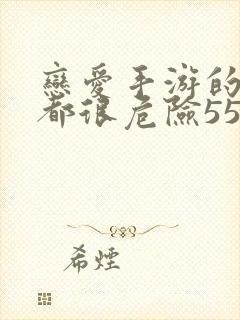 戀愛手游的
都很危險55
希煙